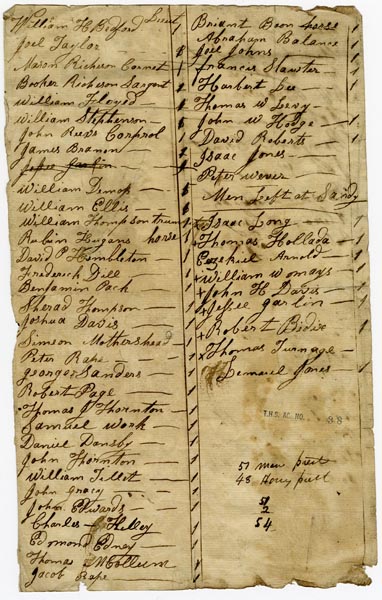 William H Bedford Lieut 1
Joel Taylor 1
Mason Richeson Cornet 1
Booker Richeson Sargent 1
William Floyed 1
William Stephenson 1
John Reevs Corprol 1
James Branon 1
Jesse Garlin
William Dimop 1
William Ellis 1
William Thompson trum 1
Rubin Hugans horse
David P Himbleton 1
Frederick Dill 1
Benjamin Pack 1
Sherad Thompson 1
Joshua Davis 1
Simeon Mothershead 1
Peter Rape 1
george Sanders 1
Robert Page 1
Thomas J Thornton 1
Samuel Work 1
Daniel Dansby 1
John Thornton 1
William Tillet 1
John Gracy 1
John Edwards 1
Charles Kelley 1
Edmond Edney 1
Thomas McCollum 1
Jacob Rape 1
Briant Boon horse
Abraham Balance 1
Joel Johns 1
Francis Slawter 1
Harbert Lee 1
Thomas W Levy 1
John W Hodge 1
David Roberts 1
Isaac Jones 1
Peter Wever 1
Men Leeft at Sandy
+ Isaac Long 1
+ Thomas Hollada 1
Ezekiel Arnold 1
+ William Womays 1
+ John H Davis 1
+ Jessee garlin 1
+ Robert Bidix 1
+ Thomas Turnage 1
Lemuel Jones 1
T.H.S. AC. NO. 38
51 men
48
51
2
54